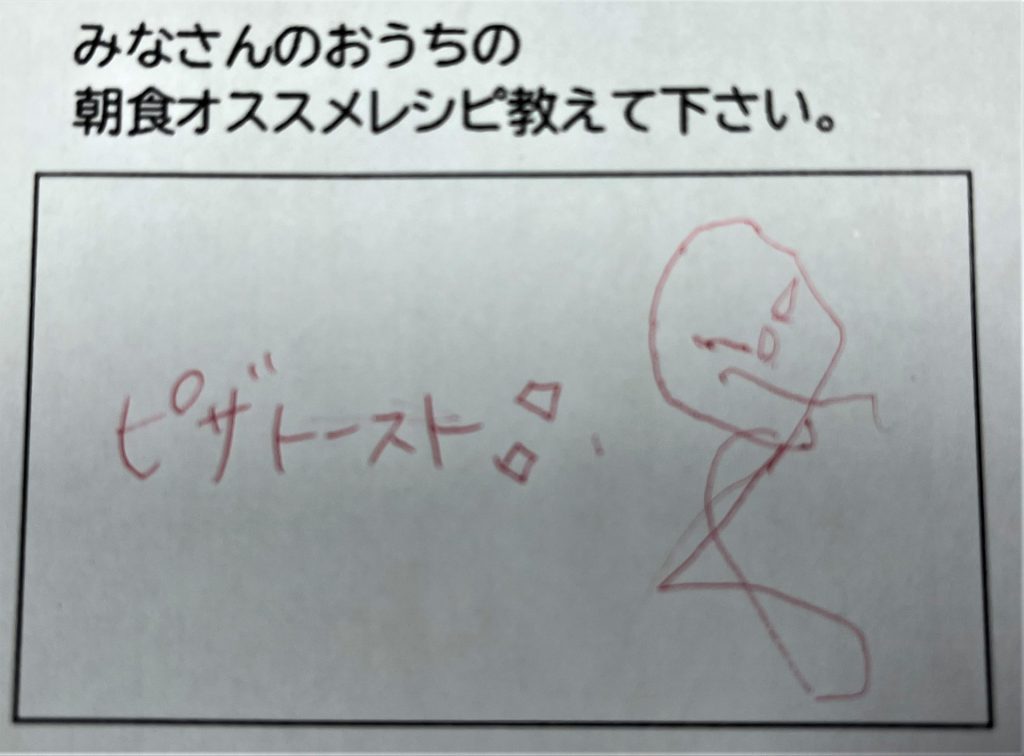 みなさんのおうちの
朝食オススメレシピ教えて下さい。
ピザトースト